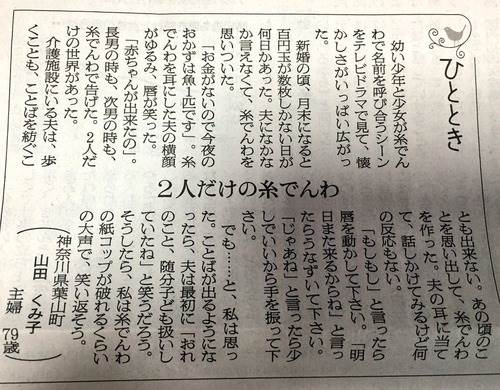 ひととき
2人だけの糸でんわ
幼い少年と少女が糸でん
わで名前を呼び合うシーン
をテレビドラマで見て、懐
かしさがいっぱい広がっ
た。
新婚の頃、月末になると
百円玉が数枚しかない日が
何日かあった。夫になかな
か言えなくて、糸でんわを
思いついた。
「お金がないので今夜の
おかずは魚1匹です」。糸
でんわを耳にした夫の横顔
がゆるみ、唇が笑った。
「赤ちゃんが出来たの」。
長男の時も、次男の時も、
糸でんわで告げた。2人だ
けの世界があった。
介護施設にいる夫は、歩
くことも、ことばを紡ぐこ
とも出来ない。あの頃のこ
とを思い出して、糸でんわ
を作った。夫の耳に当て
て、話しかけてみるけど何
の反応もない。
「もしもし」と言ったら
唇を動かして下さい。「明
日また来るからね」と言っ
たらうなずいて下さい。
「じゃあね」と言ったら少
しでいいから手を振って下
さい。
でも……と、私は思っ
た。ことばが出るようにな
ったら、夫は最初に「おれ
のこと、随分子ども扱いし
ていたね」と笑うだろう。
そうしたら、私は糸でんわ
の紙コップが破れるくらい
の大声で、笑い返そう。
神奈川県葉山町
山田 くみ子
主婦 79歳